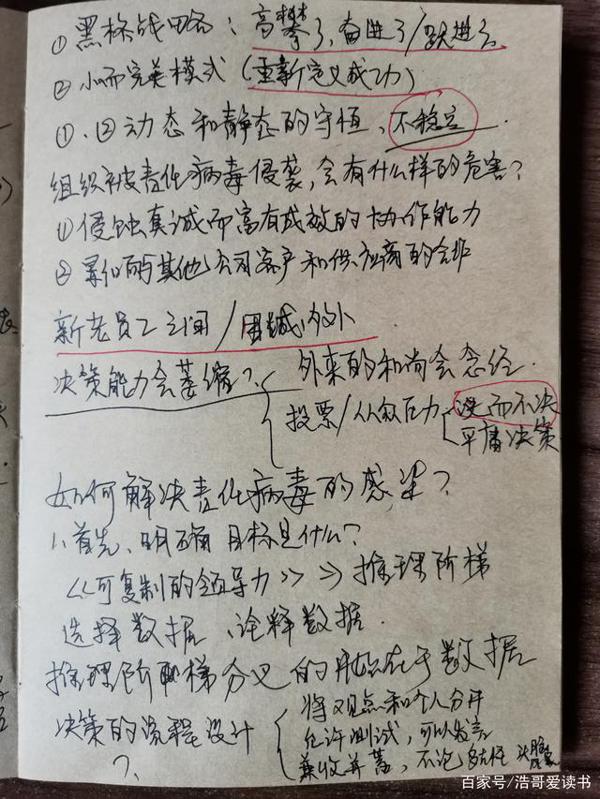 ① 黑格战略：高攀了，奋进了/跃进了
② 小而完美模式（重新定义成功）
①、②动态和静态的守恒、不稳定.
组织被责任病毒侵袭，会有什么样的危害？
①侵蚀真诚而富有成效的协作能力
② 影响其他公司客户和供应商的合作
新老员工之间/围城内外
决策能力会萎缩？ 外来的和尚会念经.
投票/从众压力 议而不决
平庸决策
如何解决责任病毒的感染？
1、首先、明确目标是什么？
《可复制的领导力》⇒推理阶梯
选择数据、诠释数据.
推理阶梯分叉的开始在于数据
决策的流程设计 将观点和个人分开
允许测试，可以发言
？ 兼收并蓄，不论多古怪
百家号/浩哥爱读书